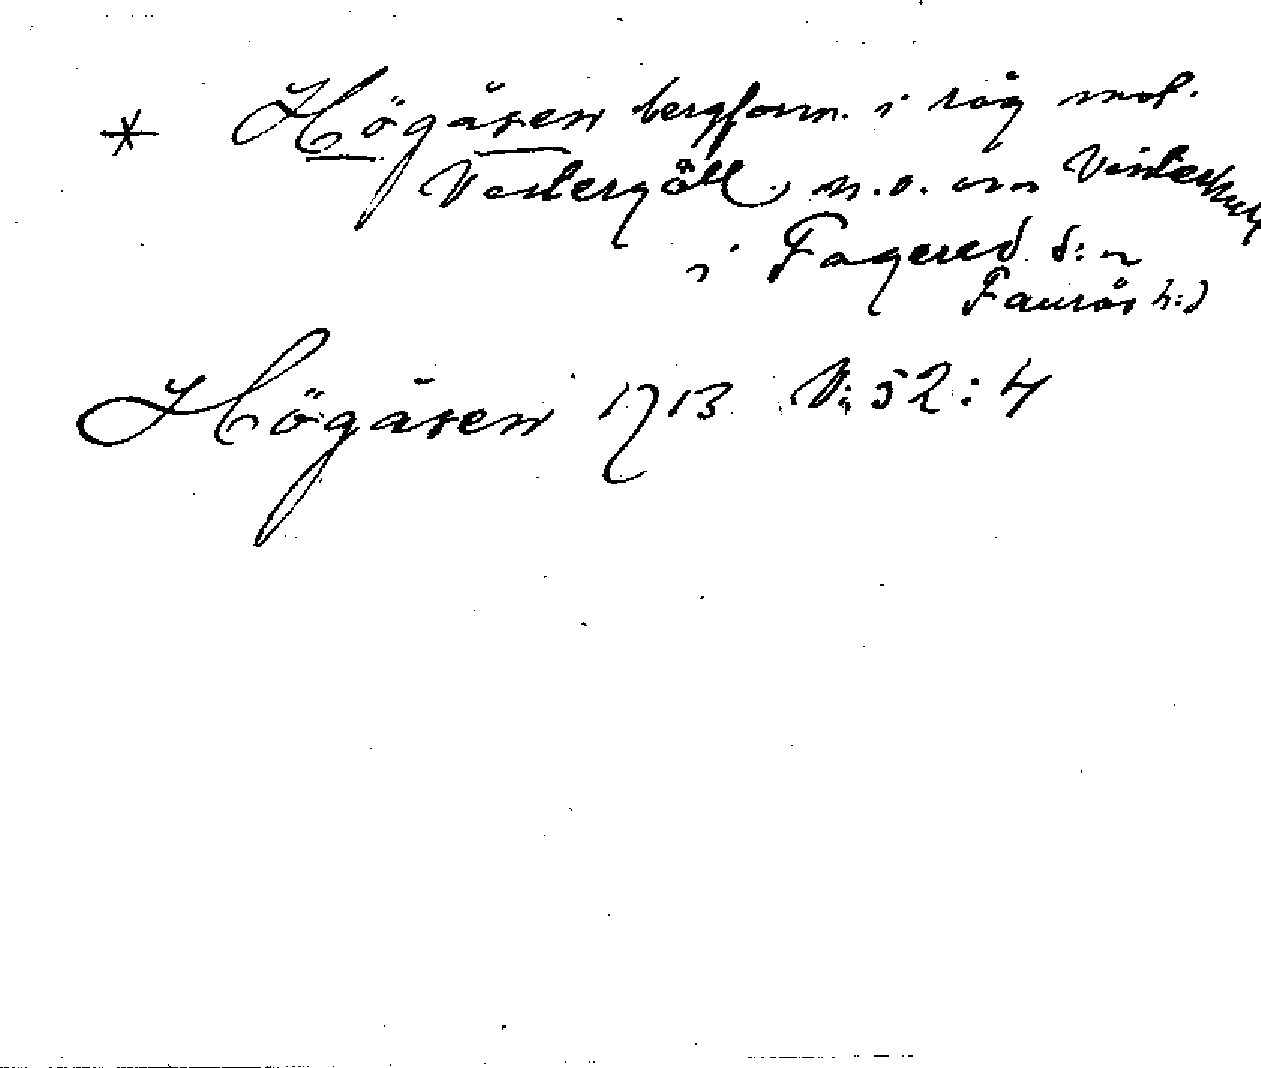 * Högåsen bergform. i råg mot.
Västergötl., n.o. om
i Fagered s:n
Faurås h:d
Högåsen 1713 V: 52: 4